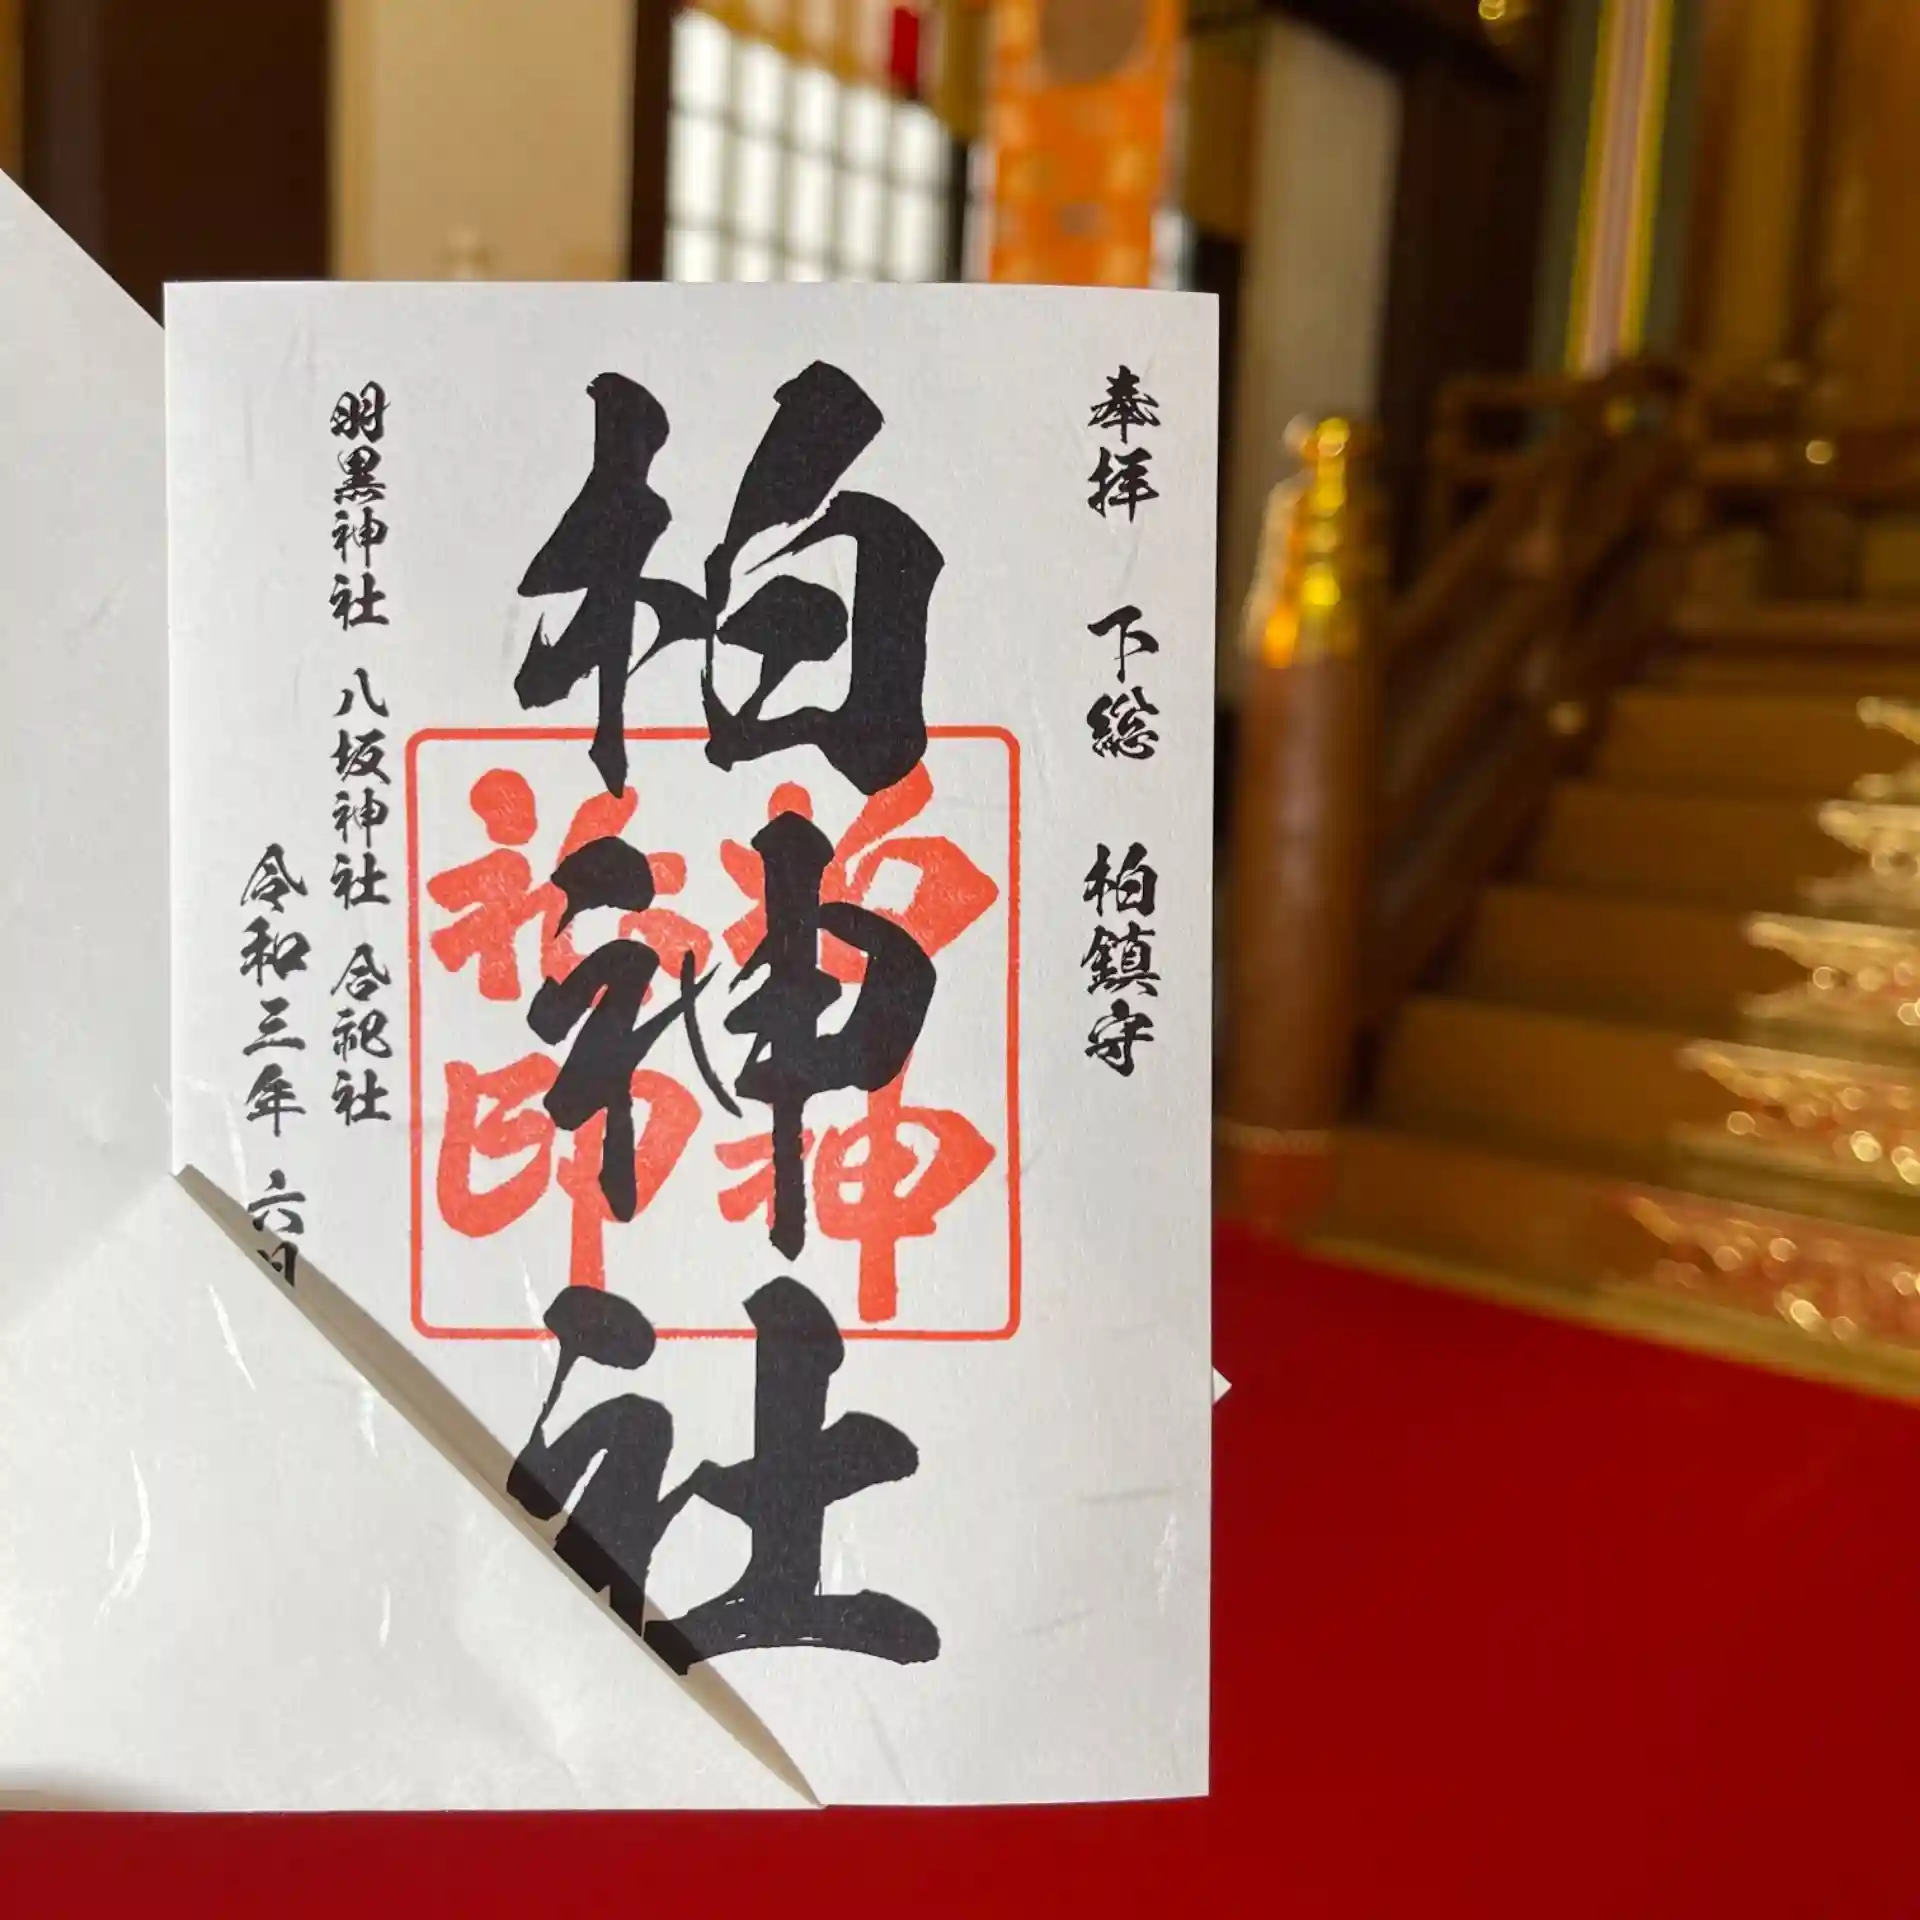 奉拝 下総 柏鎮守
柏神社
柏神社印
羽黒神社 八坂神社 合祀社
令和三年 六月